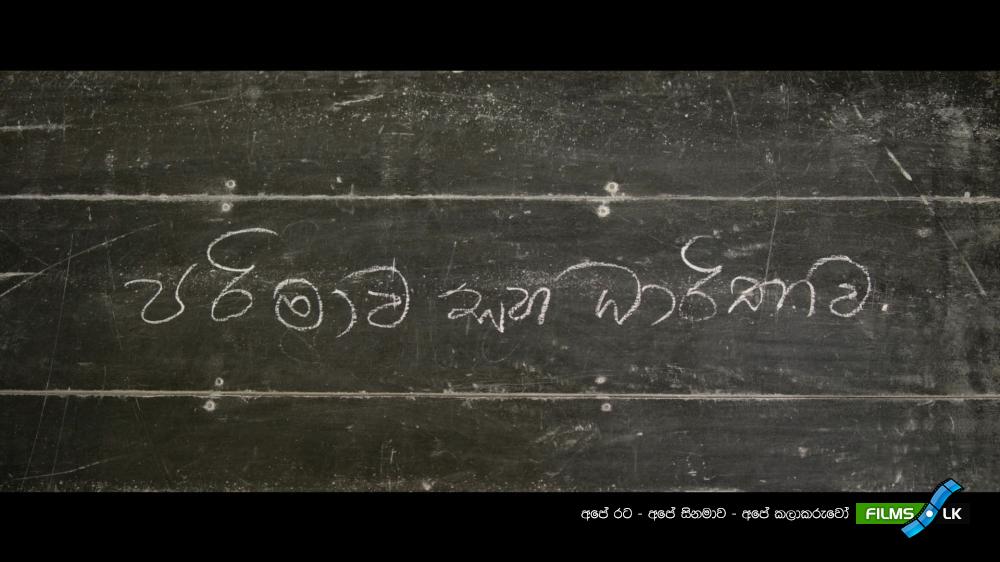 පරිමාව සහ ධාරිතාව.
අපේ රට - අපේ සිනමාව - අපේ කලාකරුවෝ FILMS.LK